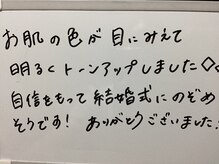 お肌の色が目にみえて
明るくトーンアップしました◇
自信をもって結婚式にのぞめ
そうです! ありがとうございました!